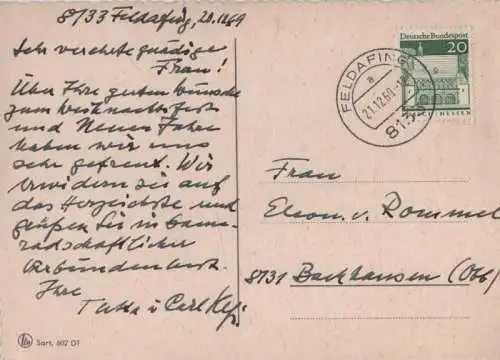 8133 Feldafing, 20.12.69
Sehr verehrte gnädige
Frau!
Über Ihre guten Wünsche
zum Weihnachtsfest
und Neues Jahr
haben wir uns
sehr gefreut. Wir
erwidern sie auf
das Herzlichste und
grüßen Sie in kame-
radschaftlicher
Verbundenheit.
Ihre
Carl
Sart. 602 D1
Deutsche Bundespost
20
FELDAFING
a
21.12.69
8133
Frau
Eleon. v. Rommel
8131 Bachhausen (Obb)